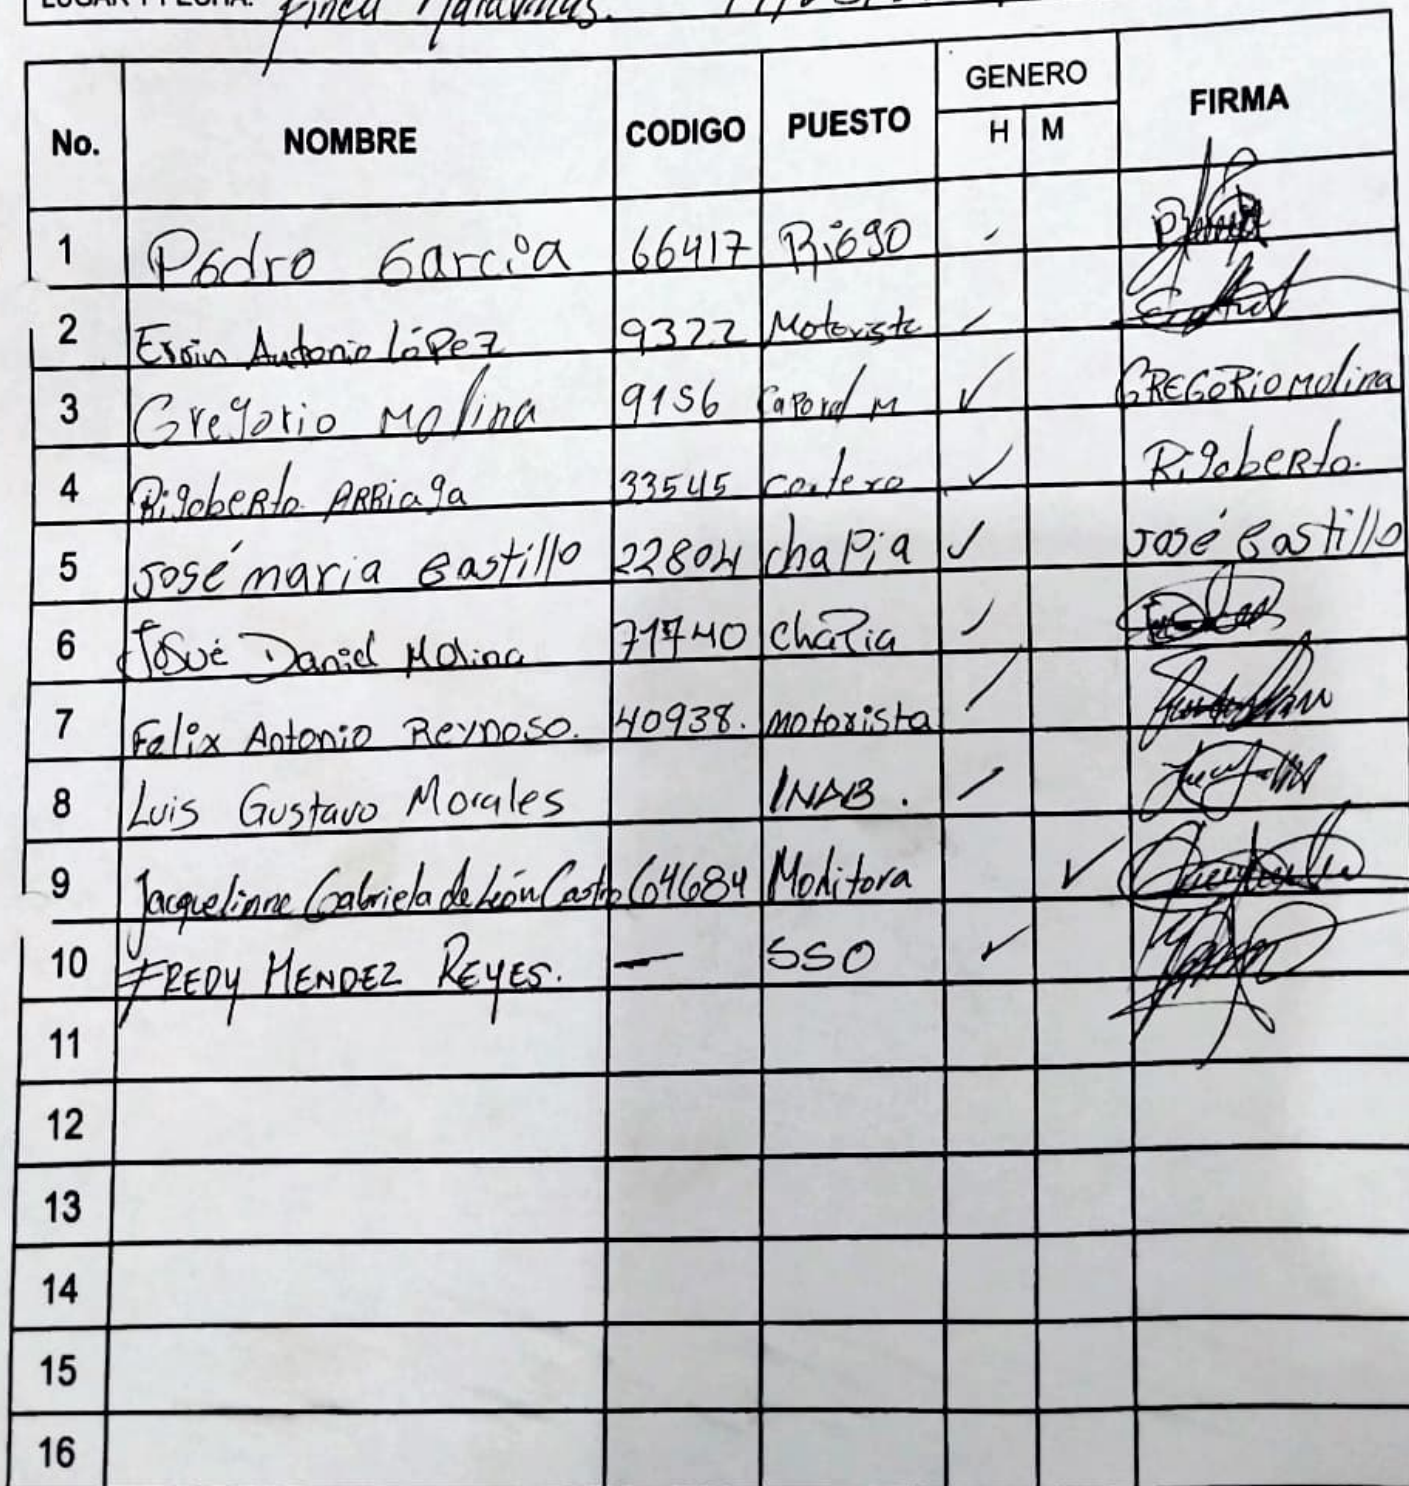 LUGAR Y FECHA: Finca Maravillas.
No. NOMBRE CODIGO PUESTO GENERO H M FIRMA
1 Pedro Garcia 66417 Riego
2 Erwin Antonio López 9322 Motorista
3 Gregorio Molina 9156 Caporal M GREGORIO Molina
4 Rigoberto ARRiaga 33545 cortero Rigoberto.
5 José maria Castillo 22804 chapia José Castillo
6 Josué Daniel Molina 71740 Chapia
7 Felix Antonio Reynoso. 40938. motorista
8 Luis Gustavo Morales INAB.
9 Jacquelinne Gabriela de León Castro 64684 Monitora
10 FREDY MENDEZ REYES. — SSO
11
12
13
14
15
16